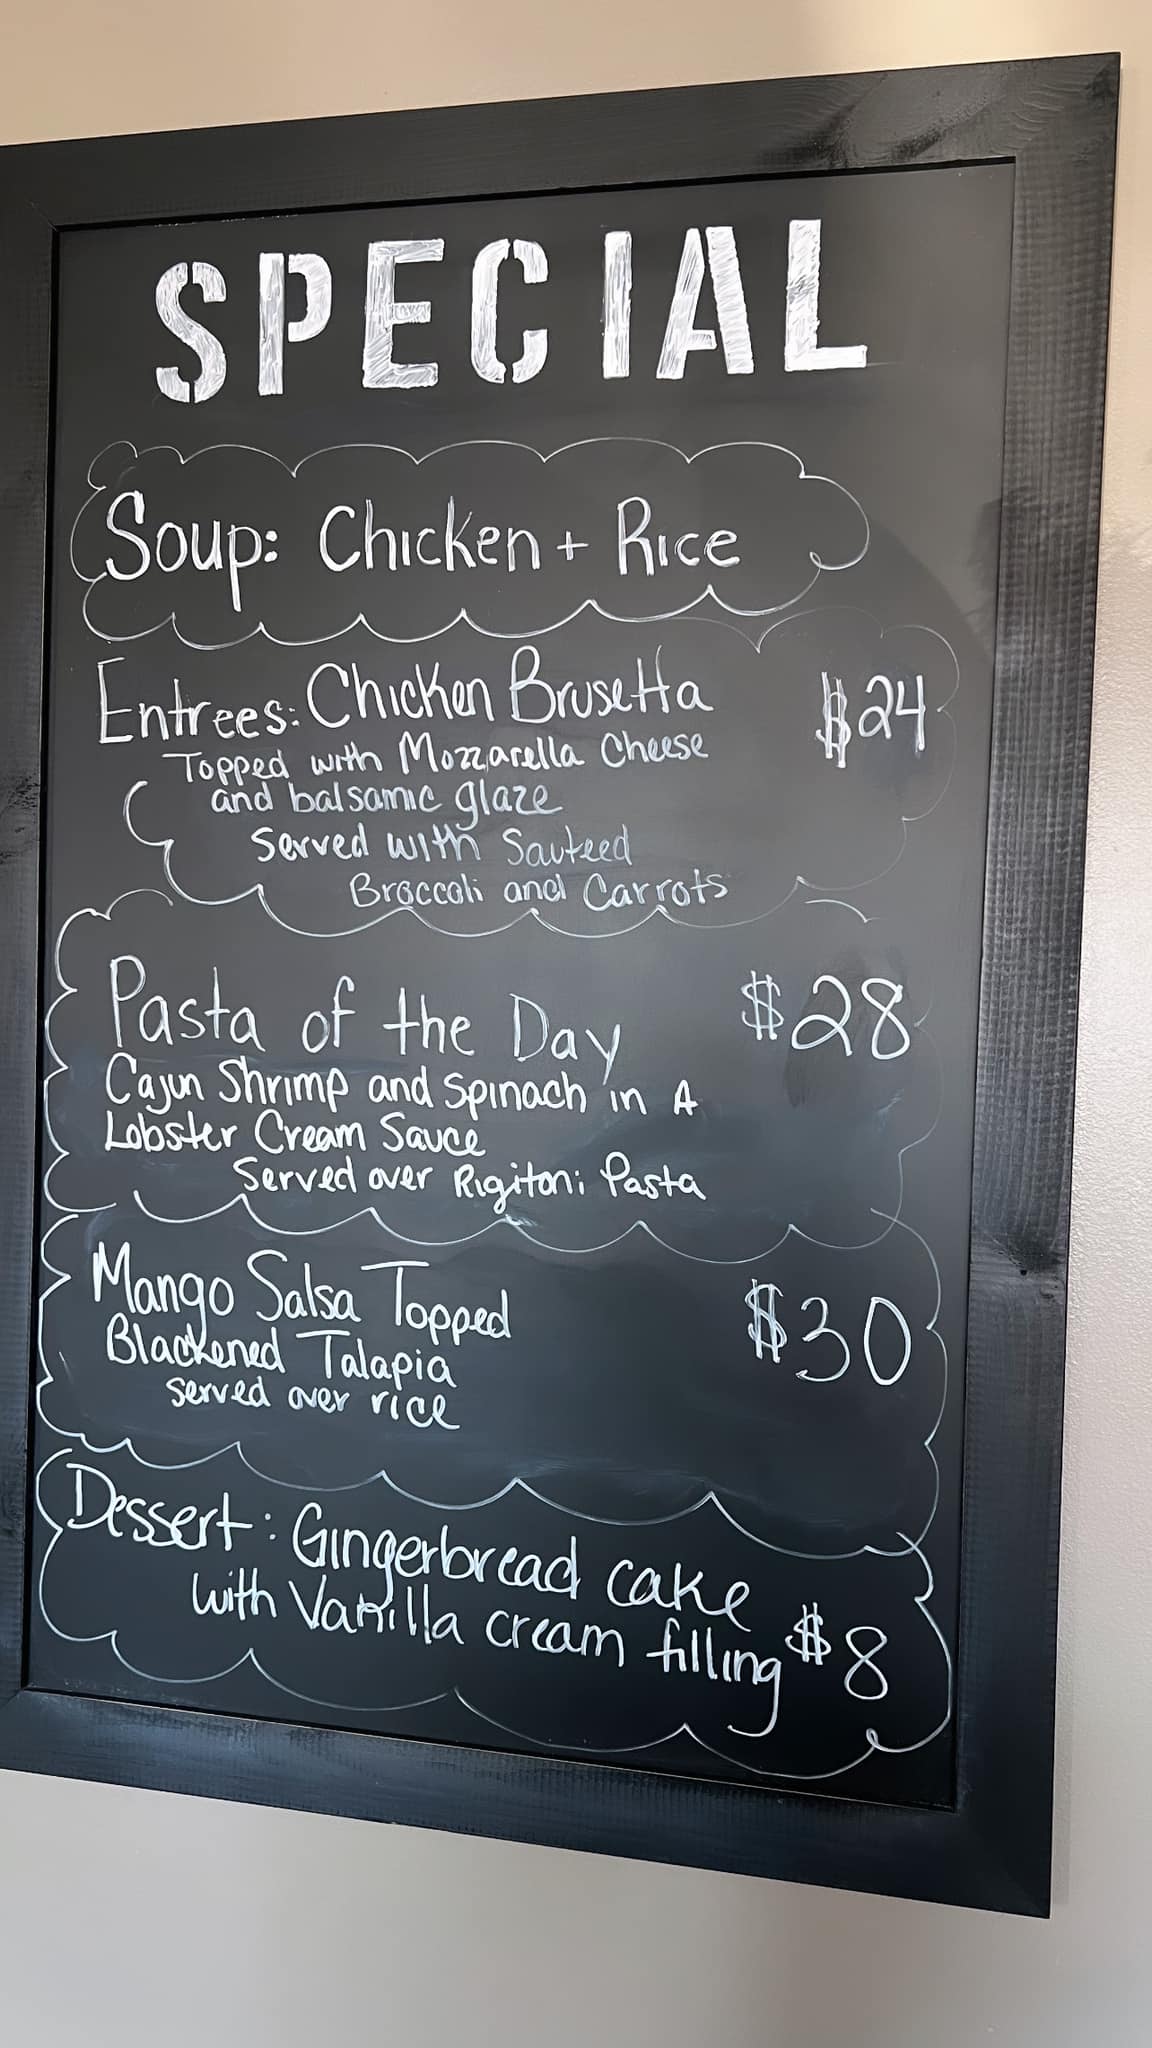 SPECIAL
Soup: Chicken + Rice
Entrees: Chicken Brusetta $24
Topped with Mozzarella Cheese
and balsamic glaze
Served with Sauteed
Broccoli and Carrots
Pasta of the Day $28
Cajun Shrimp and Spinach in A
Lobster Cream Sauce
Served over Rigitoni Pasta
Mango Salsa Topped $30
Blackened Talapia
served over rice
Dessert: Gingerbread cake
with Vanilla cream filling $8